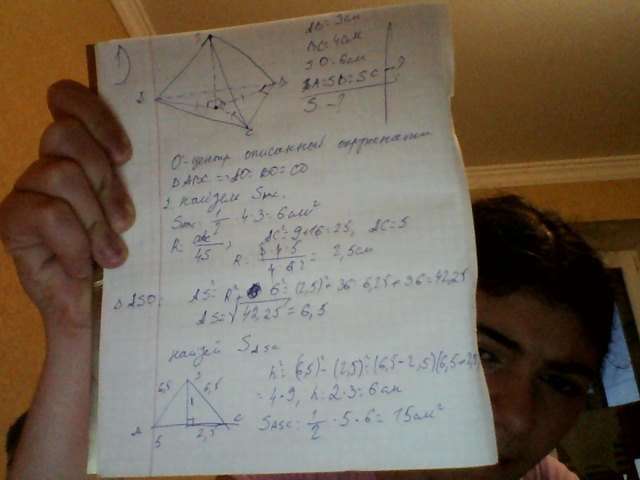 1)
S
AB = 3см
BC = 4см
SO = 6см
SA = SB = SC - ?
S - ?
B
A
C
O - центр описанный окружнасти
D ABC => AO = BO = CO
1. найдем Sтс.
Sтс. = 1/2 · 4 · 3 = 6см²
R = abc/4S, AC² = 9 + 16 = 25, AC = 5
R = 3·4·5/4·6 = 2,5см
Δ ASO: AS² = R² + 6² = (2,5)² + 36 = 6,25 + 36 = 42,25
AS = √42,25 = 6,5
найдем S ASC
h² = (6,5)² - (2,5)² = (6,5 - 2,5)(6,5 + 2,5)
= 4 · 9, h = 2 · 3 = 6см
S ASC = 1/2 · 5 · 6 = 15см²
S
6,5 6,5
A C
5 2,5